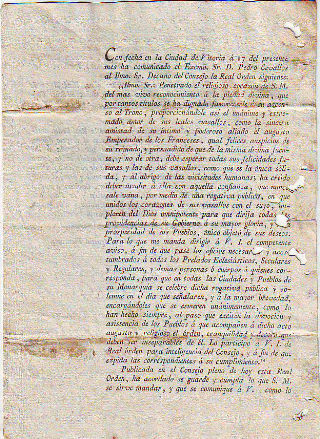 Con fecha en la Ciudad de Vitoria á 17 del presente
mes ha comunicado el Excmo. Sr. D. Pedro Cevallos
al Ilmo. Sr. Decano del Consejo la Real Orden siguiente:
"Ilmo. Sr.: Penetrado el religioso corazon de S. M.
del mas vivo reconocimiento á la piedad divina, que
por tantos titulos se ha dignado favorecerle en su acceso
al Trono, proporcionándole así el unánime y
amor de sus leales vasallos, como la sincera
amistad de su íntimo y poderoso aliado el augusto
Emperador de los Franceses, qual felices auspicios de
su reynado, y persuadido de que de la misma divina fuente,
y no de otra, debe esperar todas sus felicidades futuras
y las de sus vasallos, como que es la única sólida,
y al abrigo de las vicisitudes humanas, ha creido
deber acudir á ella con aquella confianza, que nunca
sale vana, por medio de una rogativa pública, en que
unidos los corazones de sus vasallos con el suyo, imploren
del Dios omnipotente para que dirija todas las
providencias de su Gobierno á su mayor gloria, y
prosperidad de sus Pueblos, único objeto de sus deseos.
Para lo que me manda dirigir á V. I. el competente
aviso, á fin de que pase los oficios necesarios y acostumbrados
á todos los Prelados Eclesiásticos, Seculares
y Regulares, y demas personas ó cuerpos á quienes corresponda,
para que en todas las Ciudades y Pueblos de
su Monarquía se celebre dicha rogativa pública y solemne
en el dia que señalaren, y á la mayor brevedad,
encargándoles que se esmeren unánimemente, como lo
han hecho siempre, al paso que excitan la devocion y
asistencia de los Pueblos á que acompañen á dicho acto
augusto y religioso el órden, tranquilidad y decoro que
deben ser inseparables de él. Lo participo á V. I. de
Real órden para inteligencia del Consejo, y á fin de que
expida las correspondientes á su cumplimiento."
Publicada en el Consejo pleno de hoy esta Real
Orden, ha acordado se guarde y cumpla lo que S. M.
se sirve mandar, y que se comunique á V. como lo